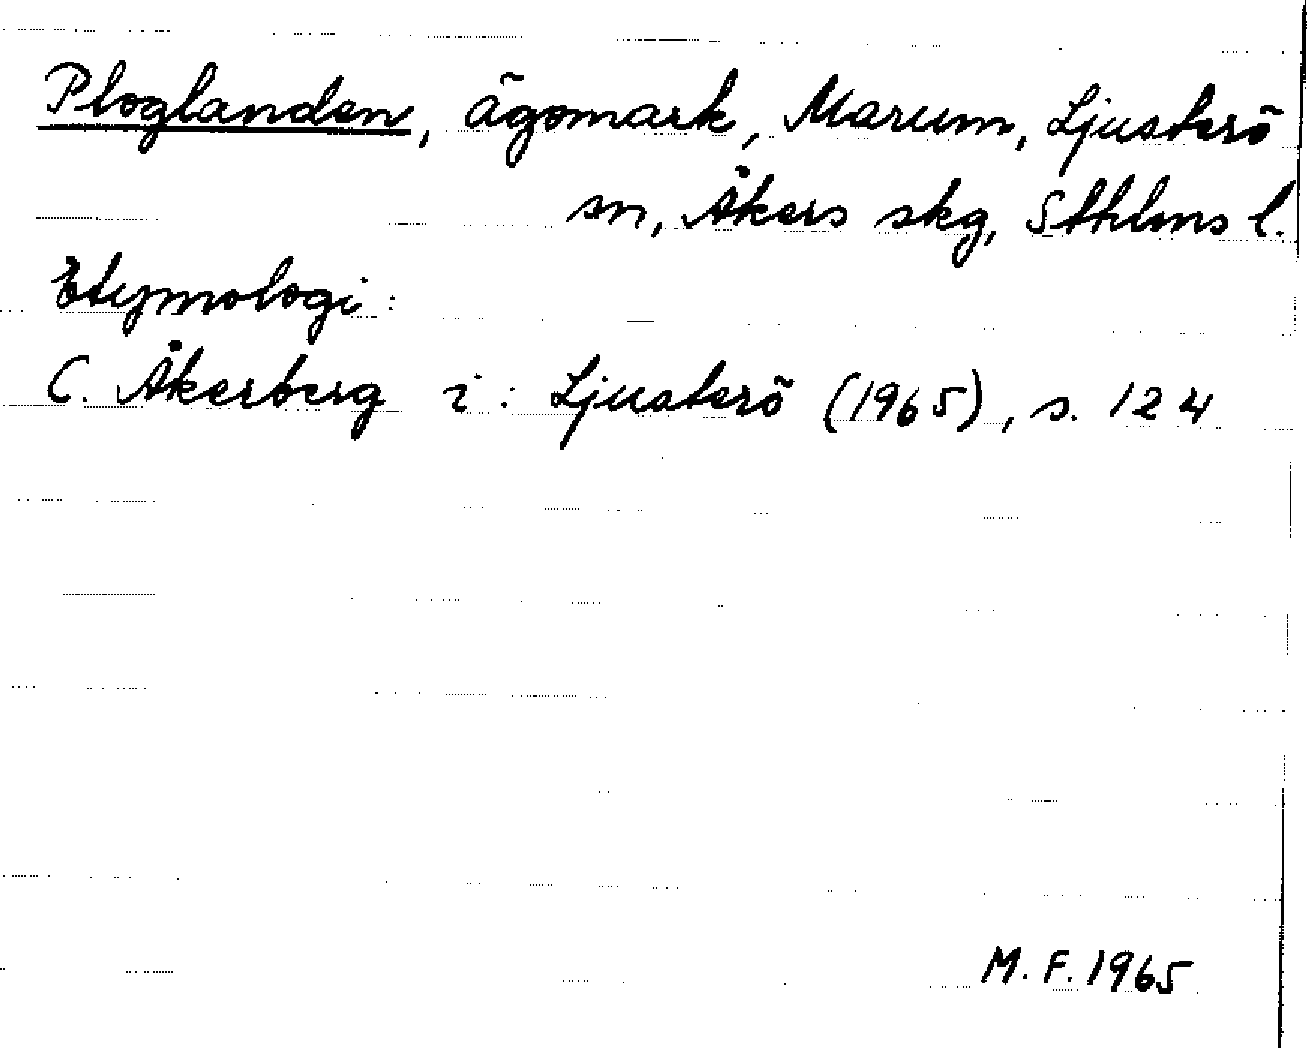 Ploglanden, ägomark, Marum, Ljusterö
sn, Åkers skg, Sthlms l.
Etymologi:
C. Åkerberg i: Ljusterö (1965), s. 124
M. F. 1965